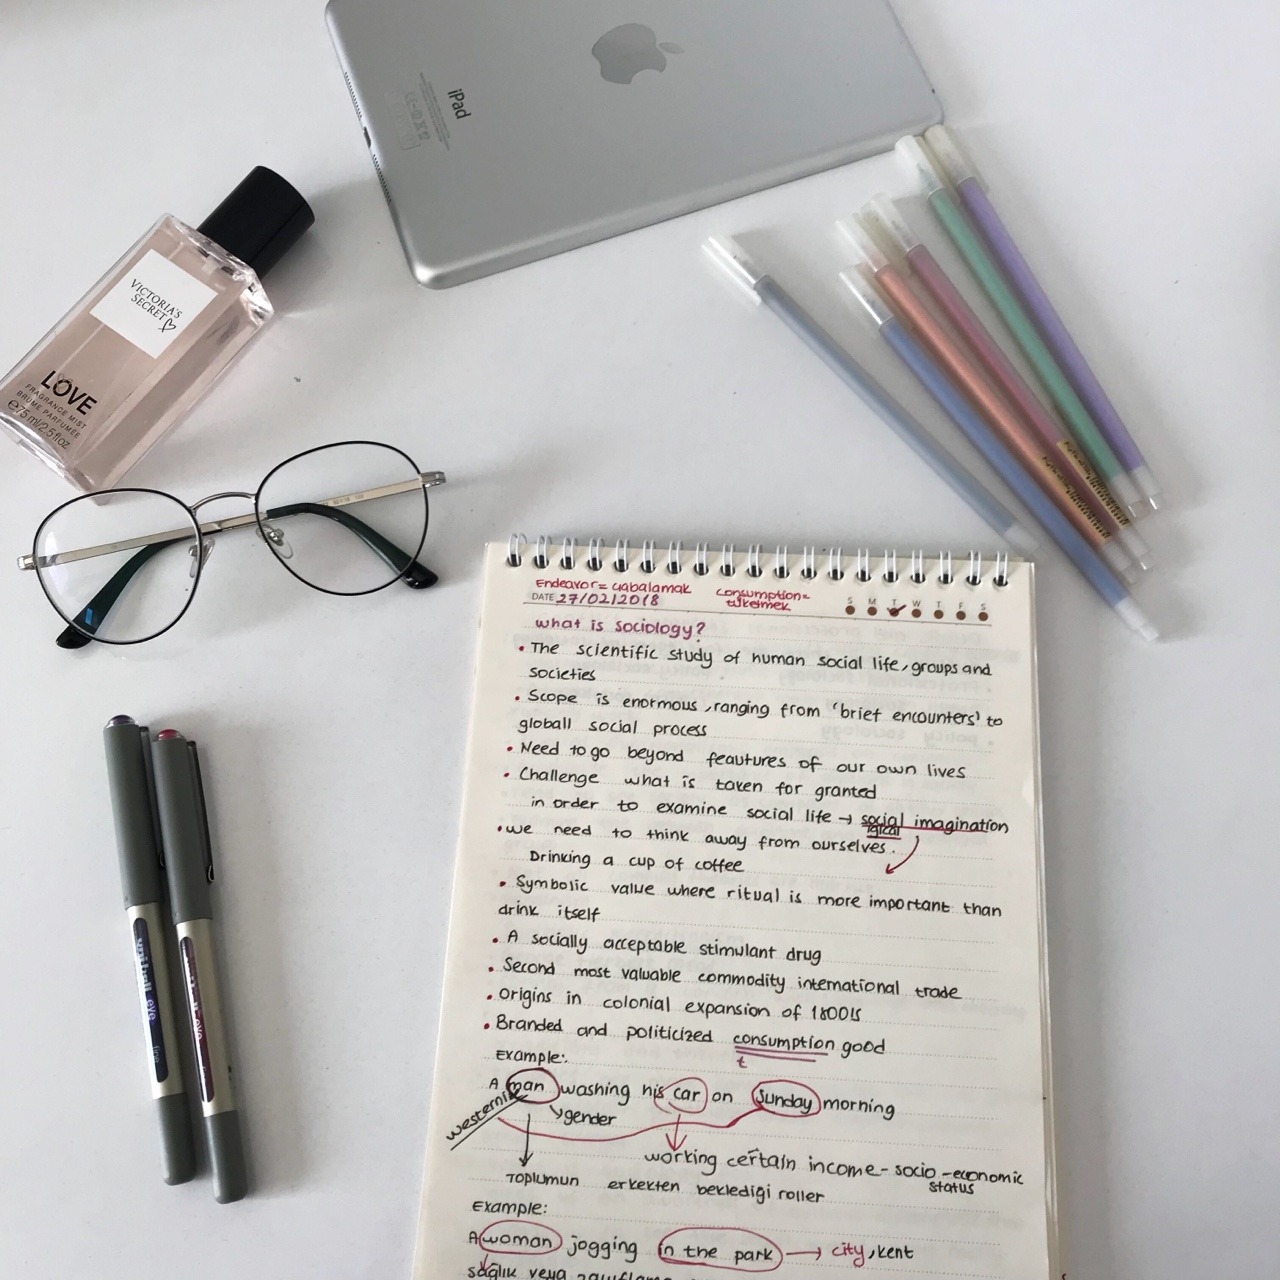 iPad
VICTORIA'S
SECRET
LOVE
FRAGRANCE MIST
BRUME PARFUMÉE
℮75 ml/2.5 fl oz
Endeavor= Çabalamak
Consumption=
tüketmek
DATE 27/02/2018
S M T W T F S
what is sociology?
• The scientific study of human social life, groups and
societies
• Scope is enormous, ranging from 'brief encounters' to
globall social process
• Need to go beyond feautures of our own lives
• Challenge what is taken for granted
in order to examine social life → social imagination
gical
• we need to think away from ourselves.
Drinking a cup of coffee
• Symbolic value where ritual is more important than
drink itself
• A socially acceptable stimulant drug
• Second most valuable commodity international trade
• Origins in colonial expansion of 1800's
• Branded and politicized consumption good
t
Example:
A man washing his car on Sunday morning
gender
working certain income - socio-economic
status
Toplumun erkekten beklediği roller
Example:
A woman jogging in the park → city, kent
sağlık veya
uniball eye
fine
eye